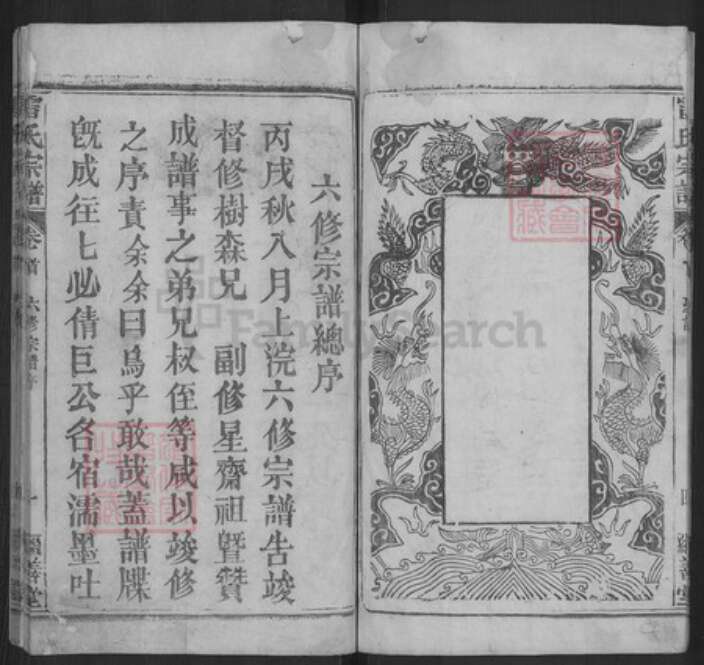 六修宗譜總序
丙戌秋八月上浣六修宗譜告竣
督修樹森兄 副修星齋祖暨贊
成譜事之弟兄叔侄等咸以竣修
之序責余余曰焉乎敢哉蓋譜牒
旣成往匕必倩巨公名宿濡墨吐
氏宗譜
卷首
六修宗譜序
一
善堂
氏宗譜
FamilySearch